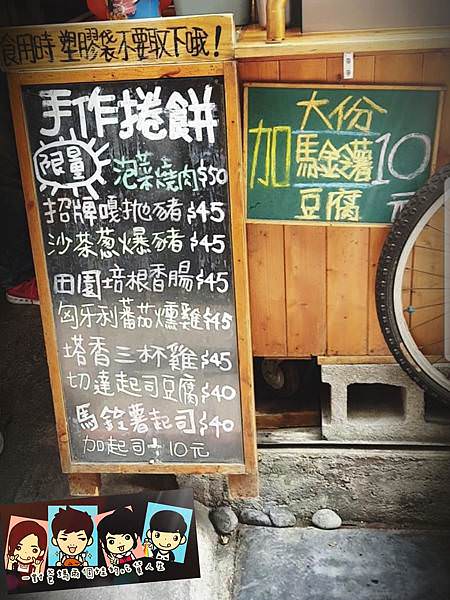 食用時 塑膠袋不要取下哦!
手作捲餅
限量
泡菜燒肉$50
招牌嘎拋豬$45
沙茶蔥爆豬$45
田園培根香腸$45
匈牙利蕃茄燻雞$45
塔香三杯雞$45
切達起司豆腐$40
馬鈴薯起司$40
加起司+10元
大份
加 馬鈴薯 10
豆腐 元